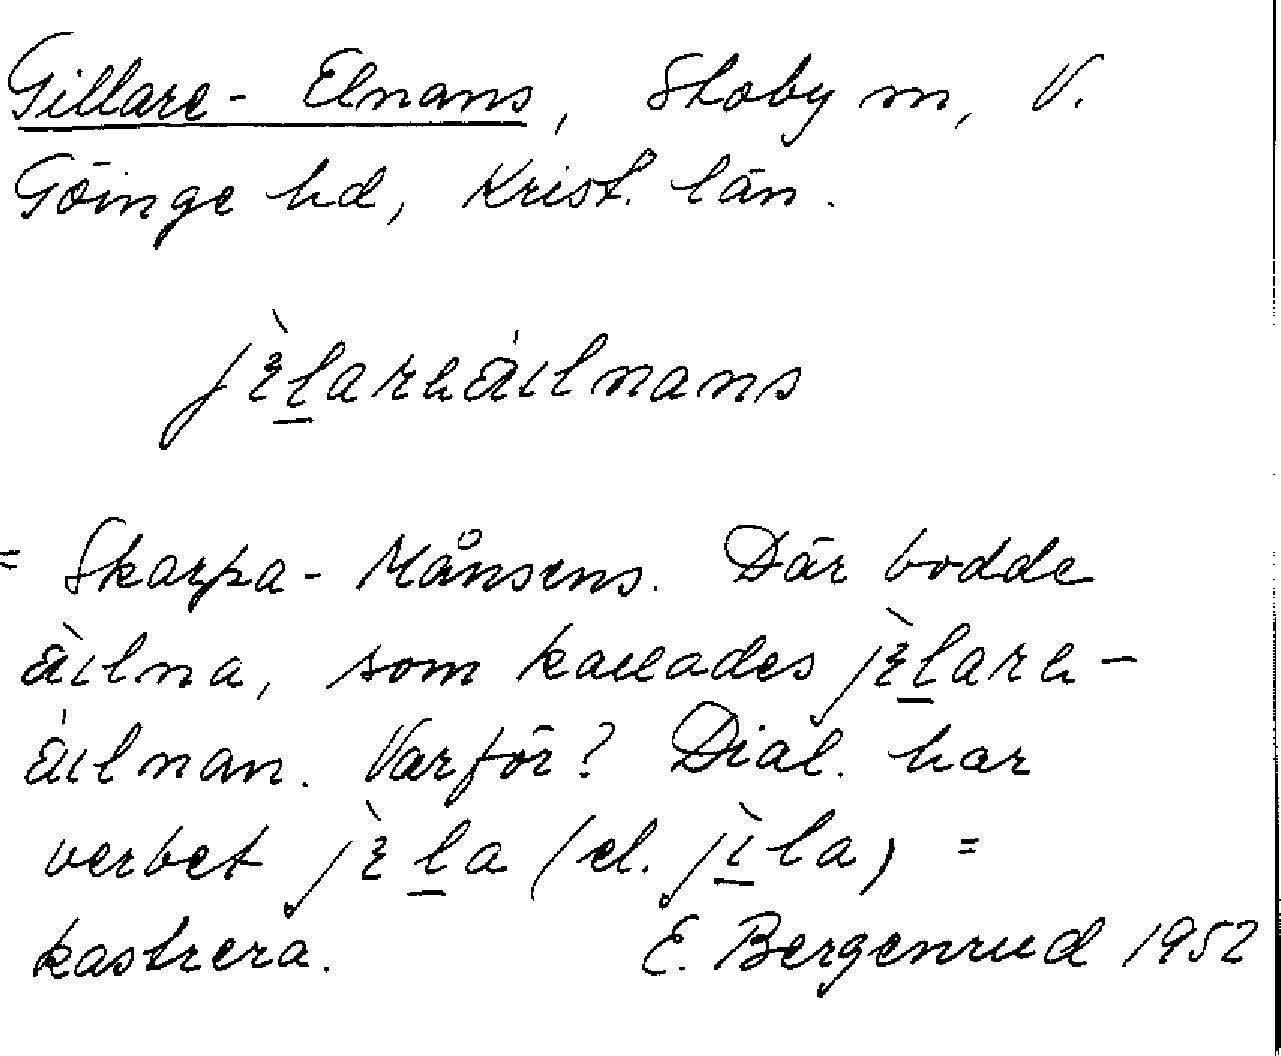 Gillare-Elnans, Stoby sn, V.
Göinge hd, Krist. län.
jɛ̀larəäılnans
= Skarpa-Månsens. Där bodde
äılna, som kallades jɛ̀larə-
äılnan. Varför? Dial. har
verbet jɛ̀la (el. jìla) =
kastrera. E. Bergenrud 1952